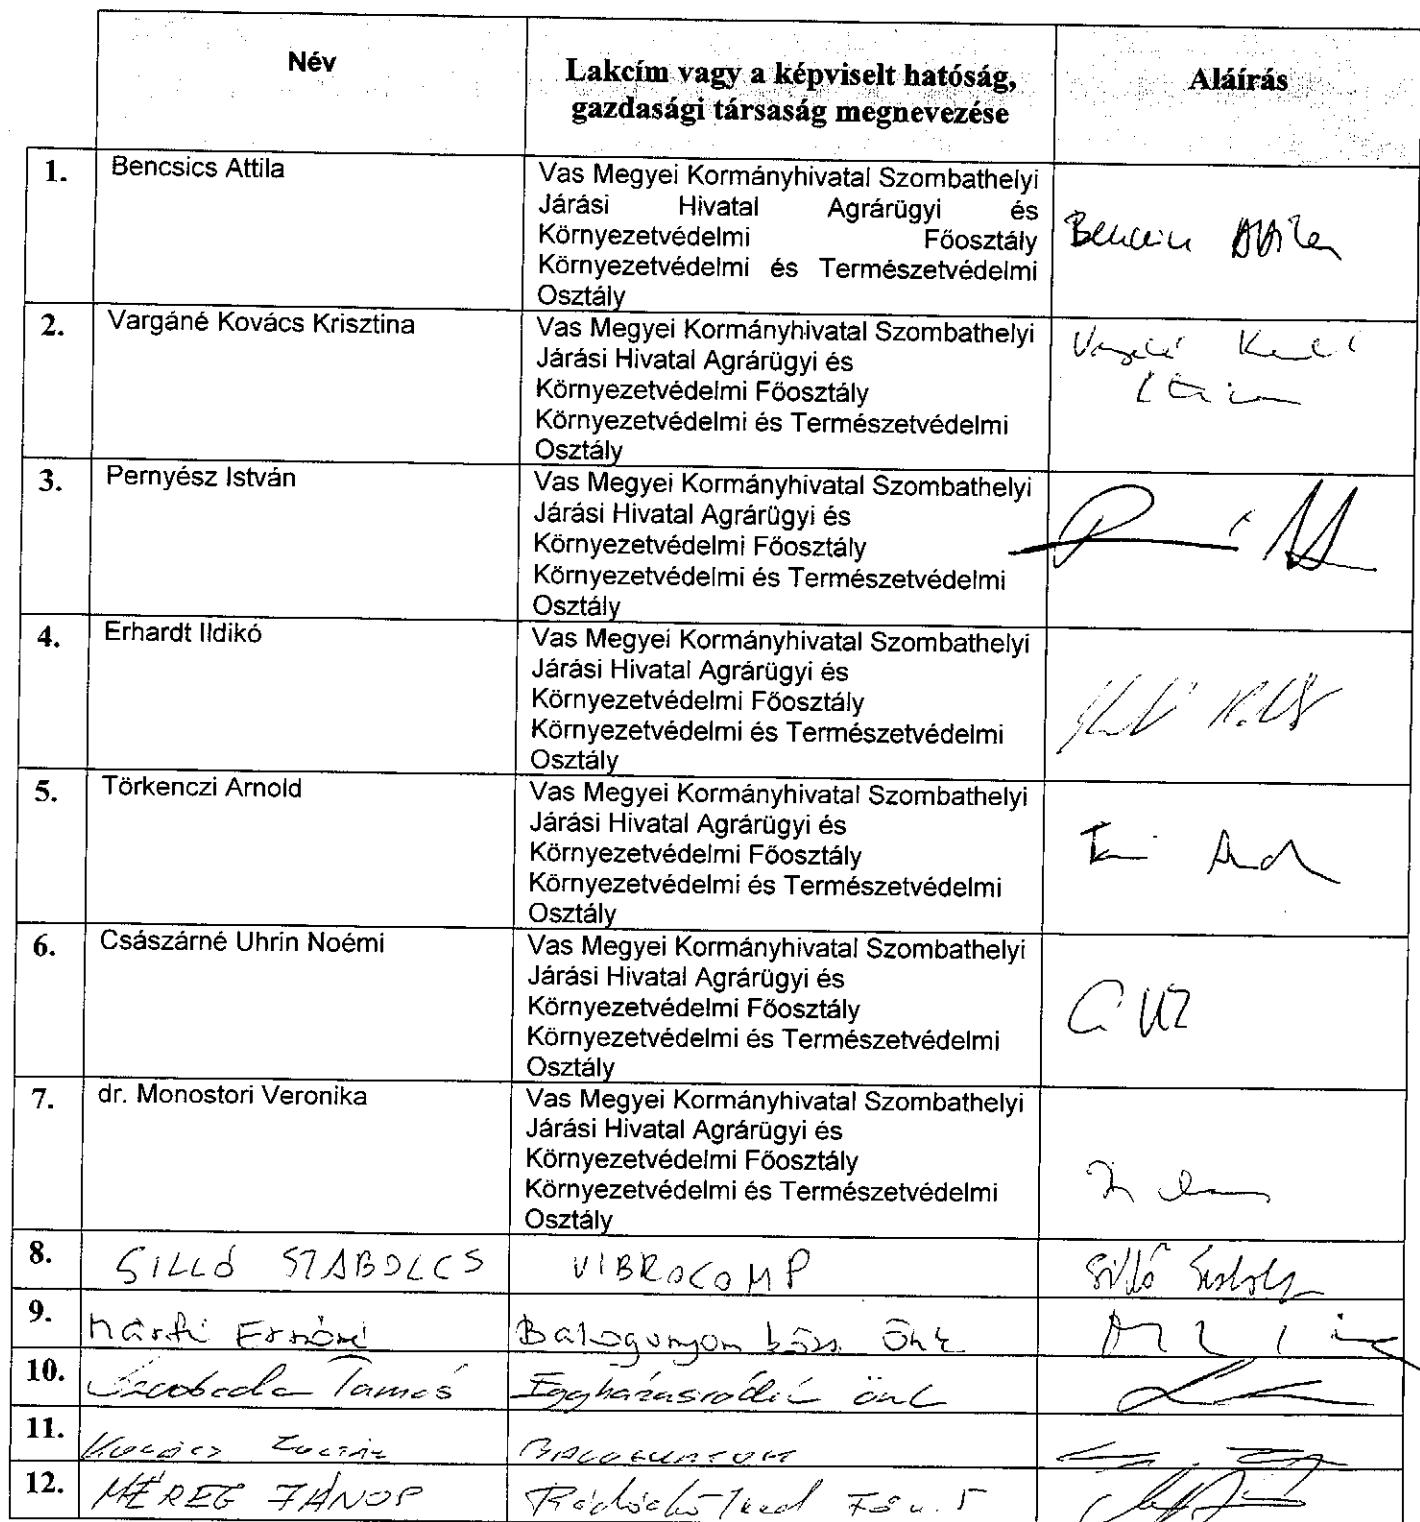 Név
Lakcím vagy a képviselt hatóság,
gazdasági társaság megnevezése
Aláírás
1.
Bencsics Attila
Vas Megyei Kormányhivatal Szombathelyi
Járási Hivatal Agrárügyi és
Környezetvédelmi Főosztály
Környezetvédelmi és Természetvédelmi
Osztály
2.
Vargáné Kovács Krisztina
Vas Megyei Kormányhivatal Szombathelyi
Járási Hivatal Agrárügyi és
Környezetvédelmi Főosztály
Környezetvédelmi és Természetvédelmi
Osztály
3.
Pernyész István
Vas Megyei Kormányhivatal Szombathelyi
Járási Hivatal Agrárügyi és
Környezetvédelmi Főosztály
Környezetvédelmi és Természetvédelmi
Osztály
4.
Erhardt Ildikó
Vas Megyei Kormányhivatal Szombathelyi
Járási Hivatal Agrárügyi és
Környezetvédelmi Főosztály
Környezetvédelmi és Természetvédelmi
Osztály
5.
Törkenczi Arnold
Vas Megyei Kormányhivatal Szombathelyi
Járási Hivatal Agrárügyi és
Környezetvédelmi Főosztály
Környezetvédelmi és Természetvédelmi
Osztály
6.
Császárné Uhrin Noémi
Vas Megyei Kormányhivatal Szombathelyi
Járási Hivatal Agrárügyi és
Környezetvédelmi Főosztály
Környezetvédelmi és Természetvédelmi
Osztály
7.
dr. Monostori Veronika
Vas Megyei Kormányhivatal Szombathelyi
Járási Hivatal Agrárügyi és
Környezetvédelmi Főosztály
Környezetvédelmi és Természetvédelmi
Osztály
8.
SILLÓ SZABOLCS
VIBROCOMP
Silló Szabolcs
9.
Ernőné
10.
Tamás
11.
12.
MÉREG JÁNOS